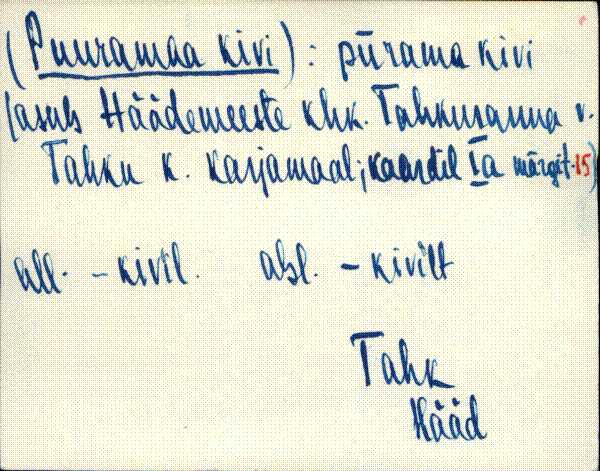 (Puuramaa kivi): pūrama kivi
(asub Häädemeeste khk. Tahkuranna v.
Tahku k. karjamaal; kaardil Ia märgit. 15)
all. -kivil. abl. -kivilt
Tahk
Hääd